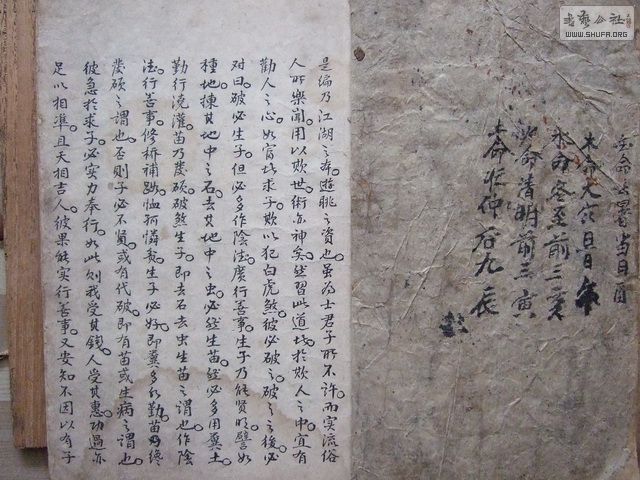 書法公社
WWW.SHUFA.ORG
金命大暑当日酉
木命大寒日
水命冬至前三亥
火命清明前三寅
土命 后九辰
是编乃江湖之本遊眺之资也虽为士君子所不许而实流俗
人所樂闻用以欺世術亦神矣然習此道 於欺人之中宜有
勸人之心如富 求子欺以犯白虎煞彼必破之破之之後必
对曰破必生子但必多作陰法廣行善事生子乃能贤明譬如
種地揀其地中之石去其地中之虫必然生苗 必多用糞土
勤行澆灌苗乃茂硕破煞生子即去石去虫生苗之谓也作陰
法行善事修桥補路恤孤憐贫生子必好即糞多 勤苗乃終
茂硕之谓也否则子必不贤或有代破即有苗或生病之谓也
彼急於求子必实力奉行如此则我受其錢人受其惠功過亦
足以相準且天相吉人彼果能实行善事又安知不因以有子